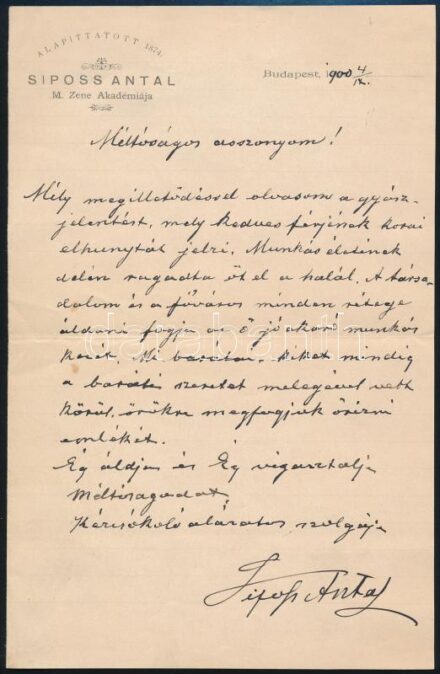 ALAPITTATOTT 1874.
SIPOSS ANTAL
M. Zene Akadémiája
Budapest, 1900 4/IX.
Méltóságos asszonyom!
Mély megilletődéssel olvasom a gyász-
jelentést, mely kedves férjének korai
elhunytát jelzi. Munkás életének
delén ragadta őt el a halál. A társa-
dalom és a főváros minden rétege
áldani fogja az ő jótékony munkás
kezét. Mi barátai, kiket mindig
a baráti szeretet melegével vett
körül, örökre megfogjuk őrizni
emlékét.
Ég áldja és Ég vigasztalja
Méltóságodat.
Kézcsókoló alázatos szolgája
Siposs Antal
darabanth